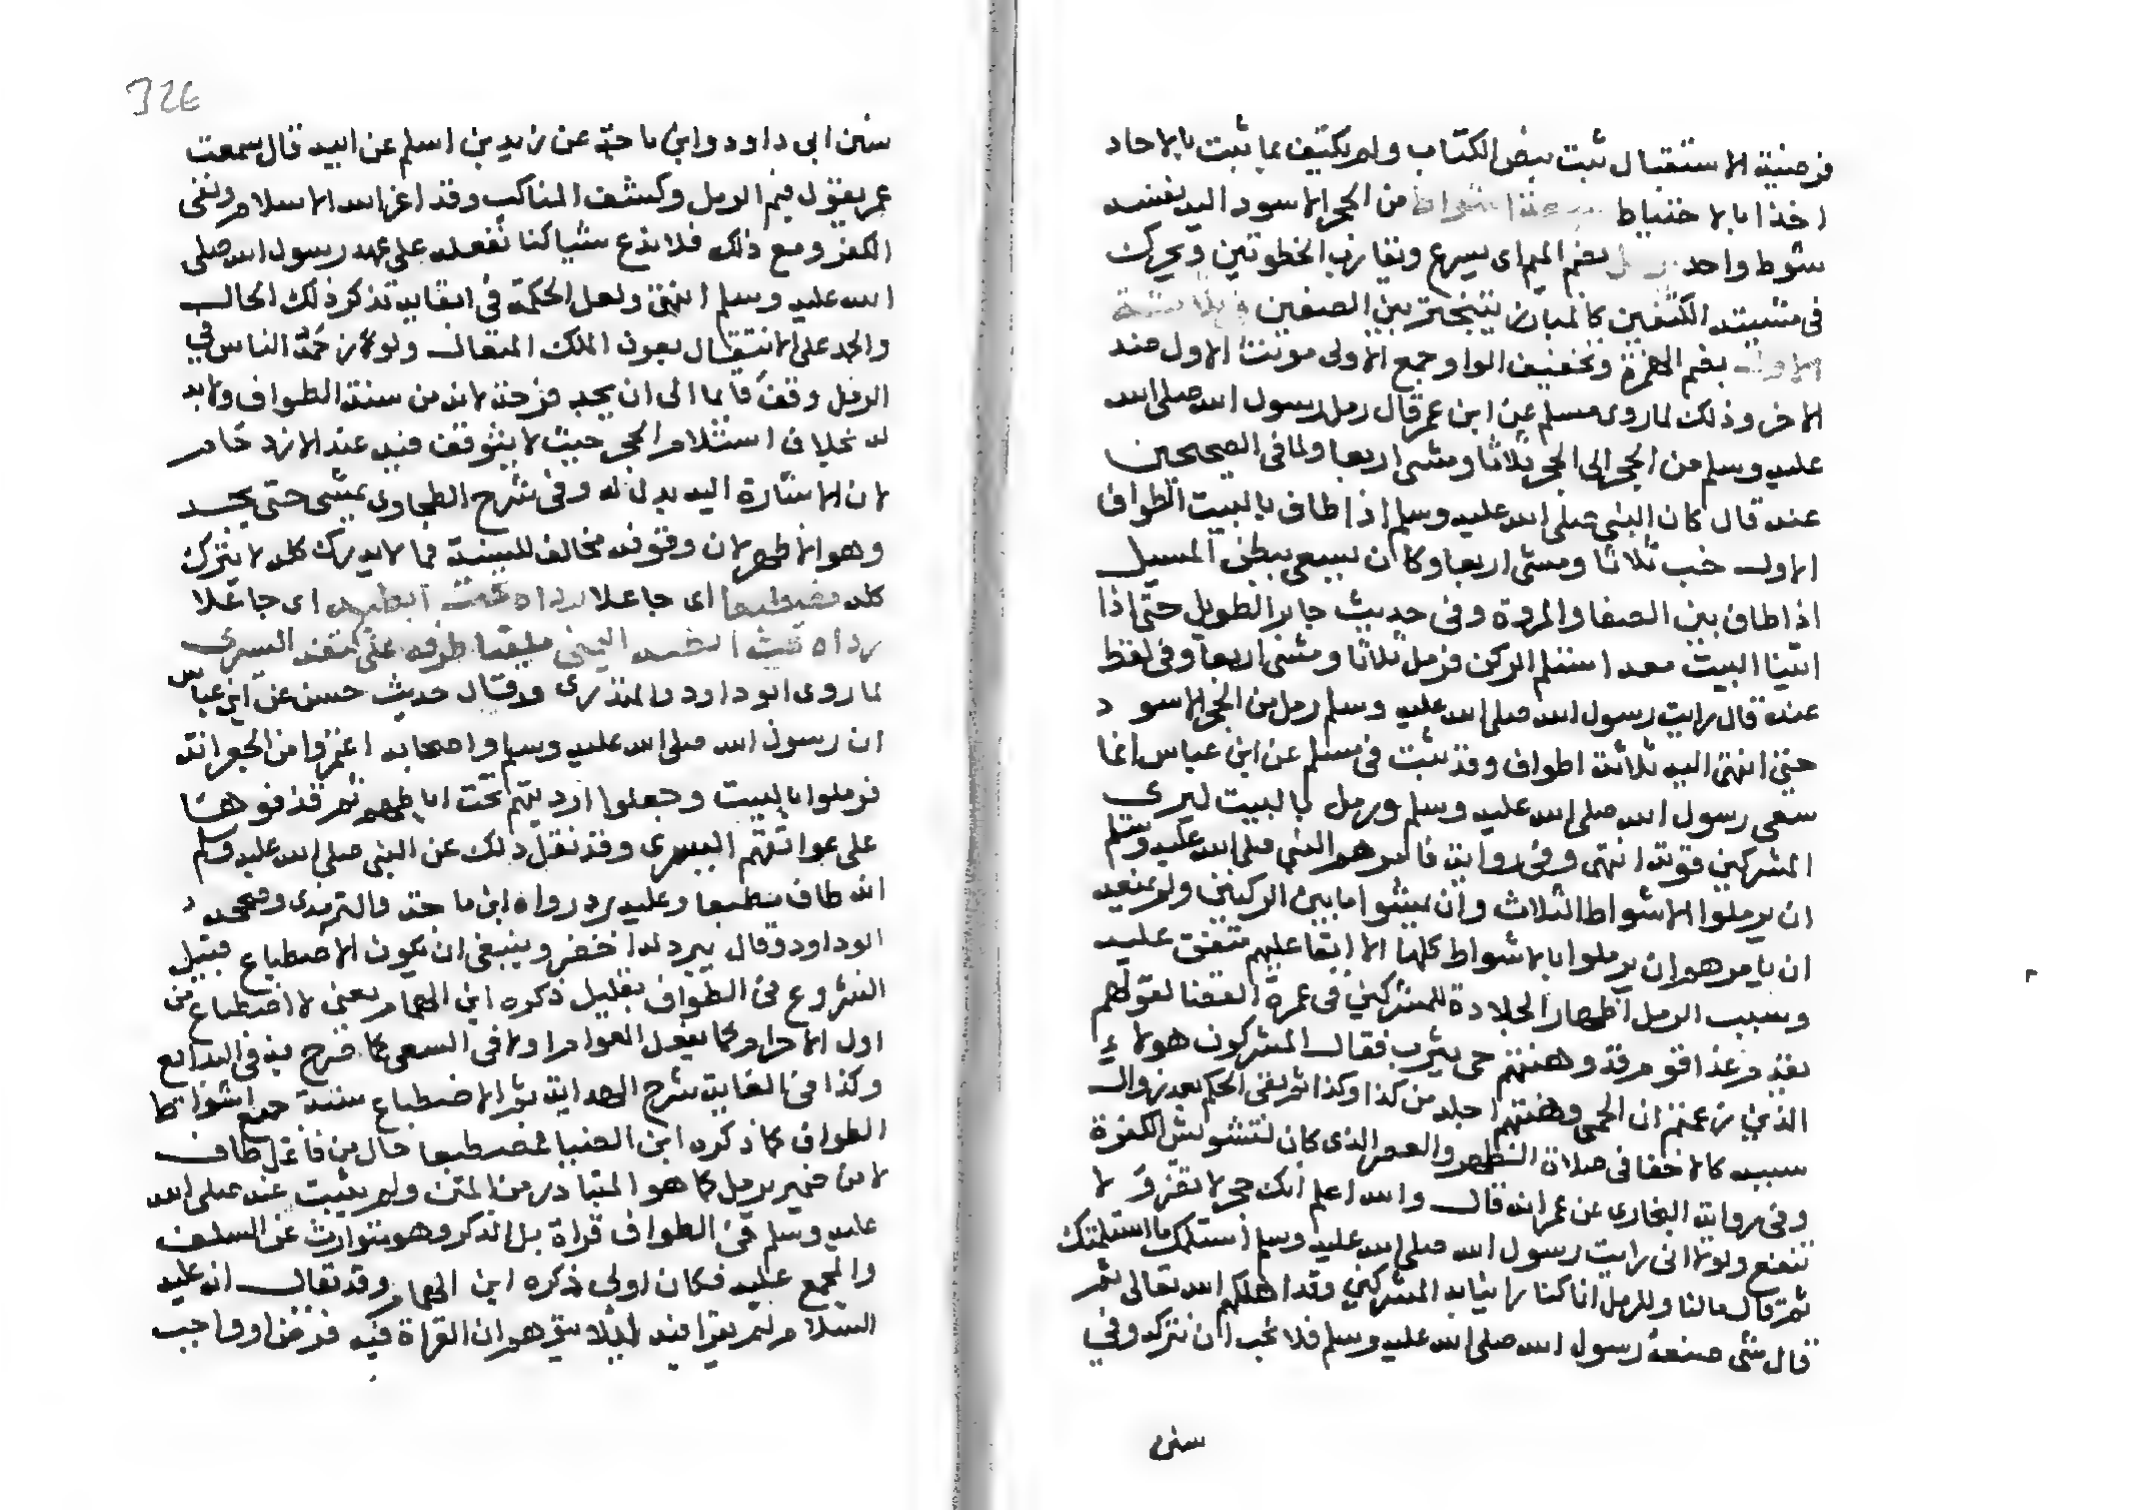 فرضية الاستقبال ثبت بنص الكتاب ولم يكتف بما ثبت بالاحاد
اخذا بالاحتياط سبعة اشواط من الحجر الاسود اليه نفسه
شوط واحد يرمل بضم الميم اى يسرع ويقارب الخطوتين ويحرك
فى مشيته الكتفين كالمبارز يتبختر بين الصفين فى الثلاثة
الاول بضم الهمزة وتخفيف الواو جمع الاولى مونث الاول ضد
الاخر وذلك لما روى مسلم عن ابن عمر قال رمل رسول الله صلى الله
عليه وسلم من الحجر الى الحجر ثلاثا ومشى اربعا ولما فى الصحيحين
عنه قال كان النبى صلى الله عليه وسلم اذا طاف بالبيت الطواف
الاول خب ثلاثا ومشى اربعا وكان يسعى ببطن المسيل
اذا طاف بين الصفا والمروة وفى حديث جابر الطويل حتى اذا
اتينا البيت معه استلم الركن فرمل ثلاثا ومشى اربعا وفى لفظ
عنه قال رايت رسول الله صلى الله عليه وسلم رمل من الحجر الاسود
حتى انتهى اليه ثلاثة اطواف وقد ثبت فى مسلم عن ابن عباس انما
سعى رسول الله صلى الله عليه وسلم ورمل بالبيت ليرى
المشركين قوته انتهى وفى رواية فامرهم النبى صلى الله عليه وسلم
ان يرملوا الاشواط الثلاث وان يمشوا ما بين الركنين ولم يمنعه
ان يامرهم ان يرملوا بالاشواط كلها الا ابقا عليهم متفق عليه
وسبب الرمل اظهار الجلادة للمشركين فى عمرة القضا لقولهم
يقدم غدا قوم قد وهنتهم حمى يثرب فقال المشركون هولاء
الذين زعمتم ان الحمى وهنتهم اجلد من كذا وكذا ثم بقى الحكم بعد زوال
سببه كالاخفا فى صلاة الظهر والعصر الذى كان لتشويش الكفرة
وفى رواية البخارى عن عمر انه قال والله اعلم انك حجر لا تضر ولا
تنفع ولولا انى رايت رسول الله صلى الله عليه وسلم استلمك ما استلمتك
ثم قال مالنا وللرمل انا كنا رائينا به المشركين وقد اهلكهم الله تعالى ثم
قال شى صنعه رسول الله صلى الله عليه وسلم فلا نحب ان نتركه وفي
سنن
326
سنن ابى داود وابن ماجة عن زيد بن اسلم عن ابيه قال سمعت
عمر يقول فيم الرمل وكشف المناكب وقد اعز الله الاسلام ونفى
الكفر ومع ذلك فلا ندع شيا كنا نفعله على عهد رسول الله صلى
الله عليه وسلم انتهى ولعل الحكمة فى ابقايه تذكر ذلك الحال
والحمد على الانتقال بعون الملك المتعال ولو لازحمه الناس في
الرمل وقف قايما الى ان يجد فرجة لانه من سنة الطواف ولا بد
له بخلاف استلام الحجر حيث لا يتوقف فيه عند الازدحام
لان الاشارة اليه بدل له وفى شرح الطحاوى يمشى حتى يجد
وهو الاظهر لان وقوفه مخالف للسنة فما لا يدرك كله لا يترك
كله مضطبعا اى جاعلا رداه تحت ابطه اى جاعلا
رداه تحت ابطه اليمنى ملقيا طرفه على كتفه اليسرى
لما روى ابو داود والمنذرى وقال حديث حسن عن ابن عباس
ان رسول الله صلى الله عليه وسلم واصحابه اعتمروا من الجعرانة
فرملوا بالبيت وجعلوا ارديتهم تحت اباطهم ثم قذفوها
على عواتقهم اليسرى وقد نقل ذلك عن النبى صلى الله عليه وسلم
انه طاف مضطبعا وعليه برد رواه ابن ماجة والترمذى وصححه و
ابو داود وقال ببرد له اخضر وينبغى ان يكون الاضطباع قبيل
الشروع فى الطواف بقليل ذكره ابن الهمام يعنى لا اضطباع من
اول الاحرام كما يفعل العوام ولا فى السعى كما صرح به فى البدايع
وكذا فى الغاية شرح الهداية ثم الاضطباع سنة جميع اشواط
الطواف كما ذكره ابن الضيا فمضطبعا حال من فاعل طاف
لا من ضمير يرمل كما هو المتبادر من المتن ولم يثبت عنه صلى الله
عليه وسلم فى الطواف قراة بل الذكر وهو متوارث عن السلف
والمجمع عليه فكان اولى ذكره ابن الهمام وقد يقال انه عليه
السلام لم يقرا فيه ليلا يتوهم ان القراة فيه فرض او واجب